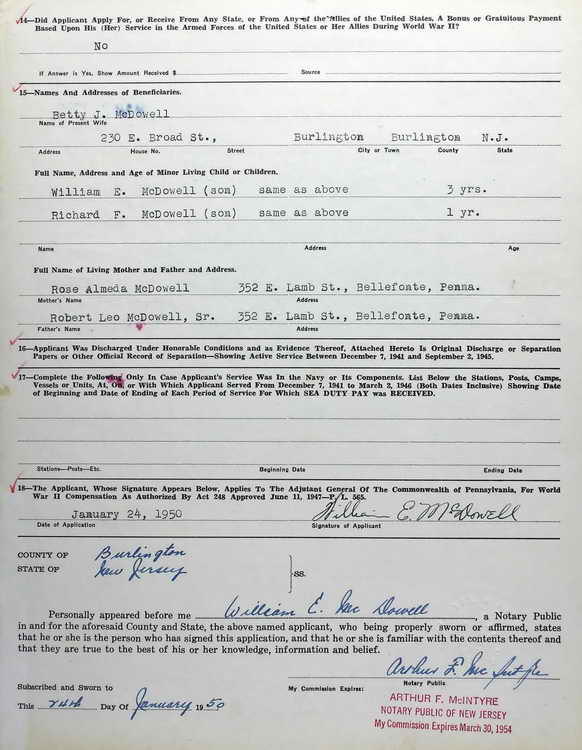 14—Did Applicant Apply For, or Receive From Any State, or From Any of the Allies of the United States, A Bonus or Gratuitous Payment
Based Upon His (Her) Service in the Armed Forces of the United States or Her Allies During World War II?
No
If Answer is Yes, Show Amount Received $ Source
15—Names And Addresses of Beneficiaries.
Betty J. McDowell
Name of Present Wife
230 E. Broad St., Burlington Burlington N.J.
Address House No. Street City or Town County State
Full Name, Address and Age of Minor Living Child or Children.
William E. McDowell (son) same as above 3 yrs.
Richard F. McDowell (son) same as above 1 yr.
Name Address Age
Full Name of Living Mother and Father and Address.
Rose Almeda McDowell 352 E. Lamb St., Bellefonte, Penna.
Mother's Name Address
Robert Leo McDowell, Sr. 352 E. Lamb St., Bellefonte, Penna.
Father's Name Address
16—Applicant Was Discharged Under Honorable Conditions and as Evidence Thereof, Attached Hereto Is Original Discharge or Separation
Papers or Other Official Record of Separation—Showing Active Service Between December 7, 1941 and September 2, 1945.
17—Complete the Following Only In Case Applicant's Service Was In the Navy or Its Components. List Below the Stations, Posts, Camps,
Vessels or Units, At, On, or With Which Applicant Served From December 7, 1941 to March 2, 1946 (Both Dates Inclusive) Showing Date
of Beginning and Date of Ending of Each Period of Service For Which SEA DUTY PAY was RECEIVED.
Stations—Posts—Etc. Beginning Date Ending Date
18—The Applicant, Whose Signature Appears Below, Applies To The Adjutant General Of The Commonwealth of Pennsylvania, For World
War II Compensation As Authorized By Act 248 Approved June 11, 1947—P. L. 565.
January 24, 1950 William E. McDowell
Date of Application Signature of Applicant
COUNTY OF Burlington
STATE OF New Jersey SS.
Personally appeared before me William E. Mc Dowell, a Notary Public
in and for the aforesaid County and State, the above named applicant, who being properly sworn or affirmed, states
that he or she is the person who has signed this application, and that he or she is familiar with the contents thereof and
that they are true to the best of his or her knowledge, information and belief.
Arthur F. McIntyre
Notary Public
Subscribed and Sworn to My Commission Expires:
This 24th Day Of January 1950
ARTHUR F. McINTYRE
NOTARY PUBLIC OF NEW JERSEY
My Commission Expires March 30, 1954